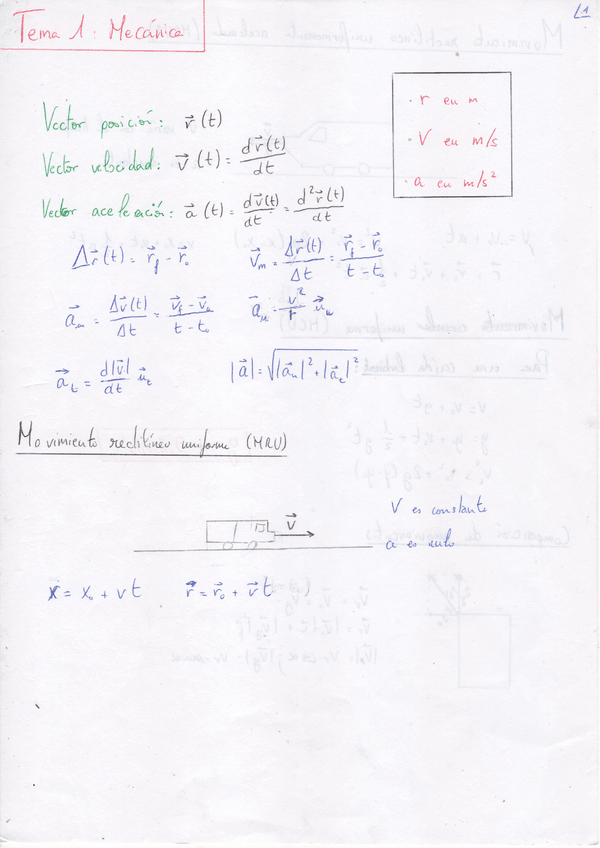 L1
Tema 1: Mecánica
· r en m
· V en m/s
· a en m/s²
Vector posición: r⃗ (t)
Vector velocidad: v⃗ (t) = dr⃗(t)/dt
Vector aceleración: a⃗ (t) = dv⃗(t)/dt = d²r⃗(t)/dt
Δr⃗(t) = r⃗f - r⃗o   v⃗m = Δr⃗(t)/Δt = (r⃗f - r⃗o)/(t - to)
a⃗m = Δv⃗(t)/Δt = (v⃗f - v⃗o)/(t - to)   a⃗n = v²/r u⃗n
a⃗t = d|v⃗|/dt u⃗t   |a⃗| = √(|a⃗n|² + |a⃗t|²)
Movimiento rectilíneo uniforme (MRU)
V es constante
v⃗
a es nulo
x = xo + vt   r⃗ = r⃗o + v⃗t